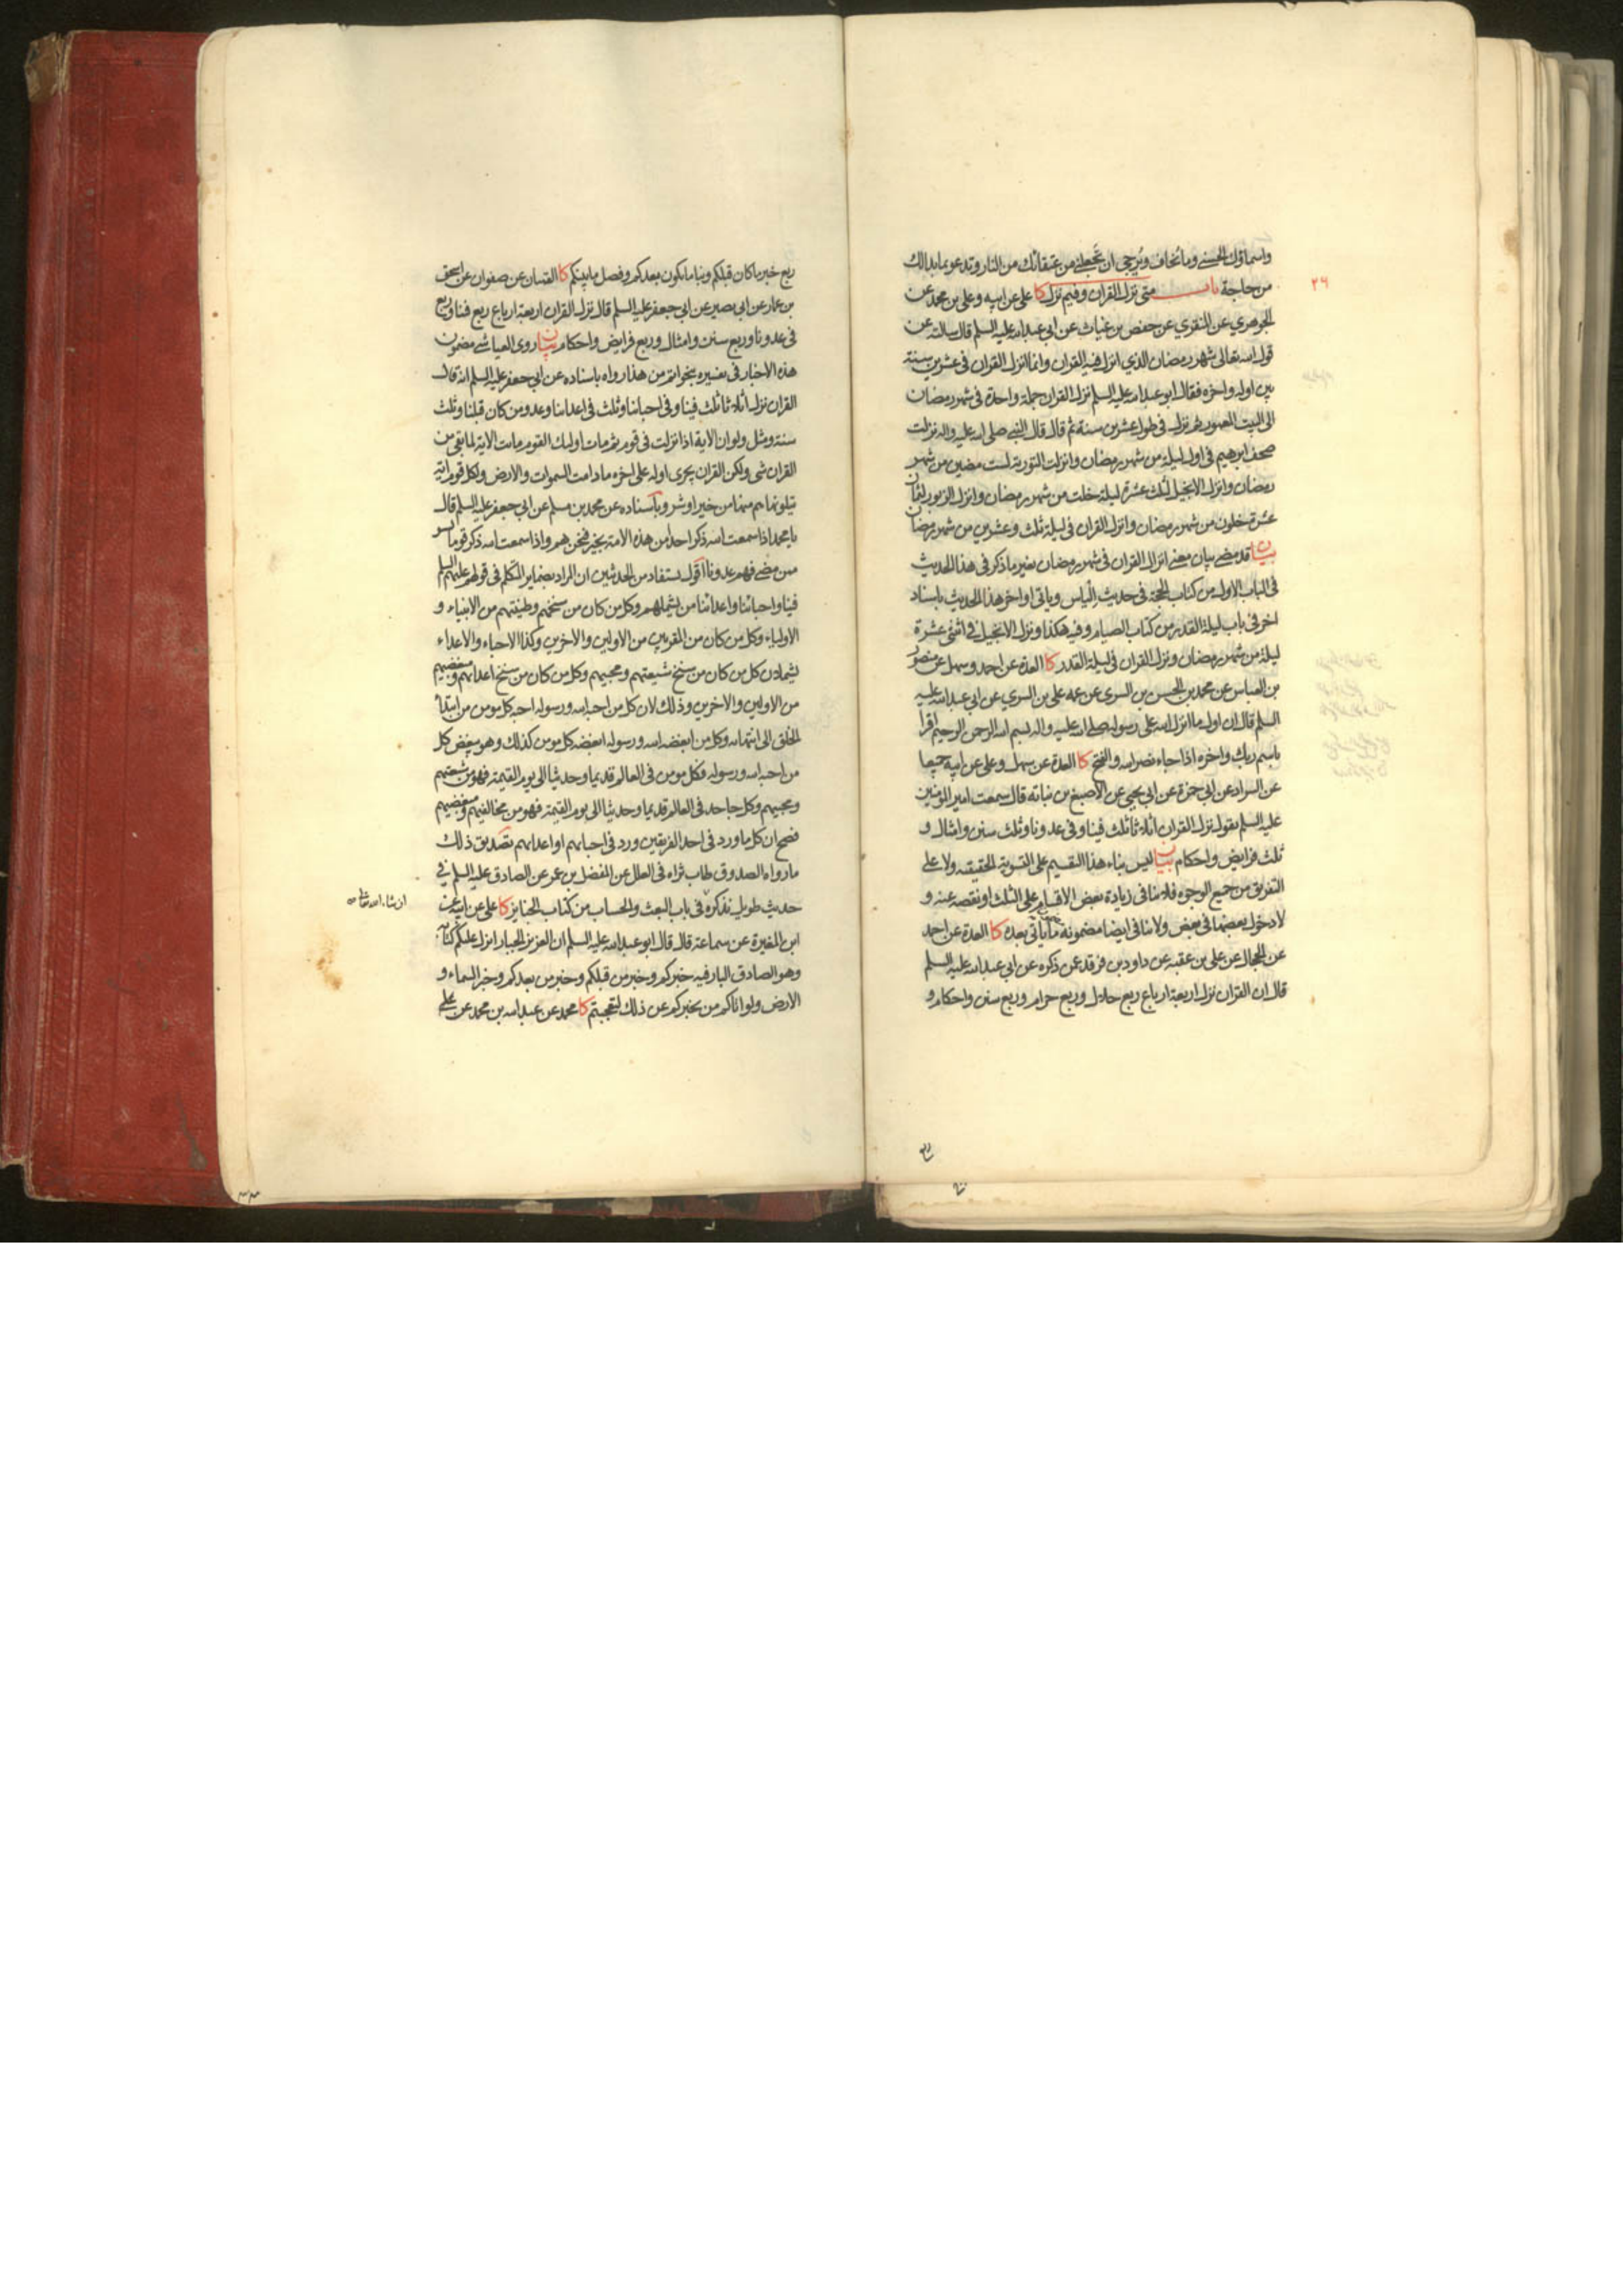 واسماؤك الحسنى وما تخاف وترجى ان تجعلني من عتقائك من النار وتدعو بما بدا لك
من حاجة باب متى نزل القران وفيم نزل كا علي عن ابيه وعلي بن محمد عن
٢٦
الجوهري عن المنقري عن حفص بن غياث عن ابي عبدالله عليه السلم قال سالته عن
قول الله تعالى شهر رمضان الذي انزل فيه القران وانما انزل القران في عشرين سنة
بين اوله واخره فقال ابو عبدالله عليه السلم نزل القران جملة واحدة في شهر رمضان
الى البيت المعمور ثم نزل في طول عشرين سنة ثم قال قال النبي صلى الله عليه واله نزلت
صحف ابرهيم في اول ليلة من شهر رمضان وانزلت التورية لست مضين من شهر
رمضان وانزل الانجيل لثلث عشرة ليلة خلت من شهر رمضان وانزل الزبور لثمان
عشرة خلون من شهر رمضان وانزل القران في ليلة ثلث وعشرين من شهر رمضان
بيان قد مضى بيان معنى انزال القران في شهر رمضان بغير ما ذكر في هذا الحديث
في الباب الاول من كتاب الحجة في حديث الياس وياتي اواخر هذا الحديث باسناد
اخر في باب ليلة القدر من كتاب الصيام وفيه هكذا ونزل الانجيل في اثنتي عشرة
ليلة من شهر رمضان ونزل القران في ليلة القدر كا العدة عن احمد وسهل عن منصور
بن العباس عن محمد بن الحسن بن السري عن عمه علي بن السري عن ابي عبدالله عليه
السلم قال ان اول ما انزل الله على رسوله صلى الله عليه واله بسم الله الرحمن الرحيم اقرا
باسم ربك واخره اذا جاء نصر الله والفتح كا العدة عن سهل وعلي عن ابيه جميعا
عن السراد عن ابي حمزة عن ابي يحيى عن الاصبغ بن نباته قال سمعت امير المومنين
عليه السلم يقول نزل القران اثلاثا ثلث فينا وفي عدونا وثلث سنن وامثال و
ثلث فرايض واحكام بيان ليس بناء هذا التقسيم على التسوية الحقيقه ولا على
التفريق من جميع الوجوه فلا ينافي زيادة بعض الاقسام على الثلث او نقصه عنه و
لا دخول بعضها في بعض ولا ينافي ايضا مضمونه ما ياتي بعده كا العدة عن احمد
عن الحجال عن علي بن عقبه عن داود بن فرقد عن ذكره عن ابي عبدالله عليه السلم
قال ان القران نزل اربعة ارباع ربع حلال وربع حرام وربع سنن واحكام و
ربع خبر ما كان قبلكم ونبا ما يكون بعدكم وفصل ما بينكم كا القميان عن صفوان عن اسحق
بن عمار عن ابي بصير عن ابي جعفر عليه السلم قال نزل القران اربعة ارباع ربع فينا وربع
في عدونا وربع سنن وامثال وربع فرايض واحكام بيان روى العياشي مضمون
هذه الاخبار في تفسيره بنحو اتم من هذا رواه باسناده عن ابي جعفر عليه السلم انه قال
القران نزل اثلاثا ثلث فينا وفي احبائنا وثلث في اعدائنا وعدو من كان قبلنا وثلث
سنة ومثل ولو ان الاية اذا نزلت في قوم ثم مات اولئك القوم ماتت الاية لما بقي من
القران شي ولكن القران يجري اوله على اخره ما دامت السموات والارض ولكل قوم اية
يتلونها هم منها من خير او شر وباسناده عن محمد بن مسلم عن ابي جعفر عليه السلم قال
يا محمد اذا سمعت الله ذكر احدا من هذه الامة بخير فنحن هم واذا سمعت الله ذكر قوما بسوء
ممن مضى فهم عدونا اقول يستفاد من الحديثين ان المراد بضماير المتكلم في قولهم عليهم السلم
فينا واحبائنا واعدائنا من يشملهم وكل من كان من سنخهم وطينتهم من الانبياء و
الاولياء وكل من كان من المقربين من الاولين والاخرين وكذا الاحباء والاعداء
يشملان كل من كان من سنخ شيعتهم ومحبيهم وكل من كان من سنخ اعدائهم ومبغضيهم
من الاولين والاخرين وذلك لان كل من احبه الله ورسوله احبه كل مومن من ابتداء
الخلق الى انتهائه وكل من ابغضه الله ورسوله ابغضه كل مومن كذلك وهو يبغض كل
من احبه الله ورسوله فكل مومن في العالم قديما وحديثا الى يوم القيمة فهو من شيعتهم
ومحبيهم وكل جاحد في العالم قديما وحديثا الى يوم القيمة فهو من مخالفيهم ومبغضيهم
فصح ان كل ما ورد في احد الفريقين ورد في احبائهم او اعدائهم تصديق ذلك
ما رواه الصدوق طاب ثراه في العلل عن المفضل بن عمر عن الصادق عليه السلم في
حديث طويل نذكره في باب البعث والحساب من كتاب الجنايز كا علي عن ابيه عن
ان شاء الله تعالى
ابن المغيرة عن سماعة قال قال ابو عبدالله عليه السلم ان العزيز الجبار انزل عليكم كتابه
وهو الصادق البار فيه خبركم وخبر من قبلكم وخبر من بعدكم وخبر السماء و
الارض ولو اتاكم من يخبركم عن ذلك لتعجبتم كا محمد عن عبدالله بن محمد عن علي